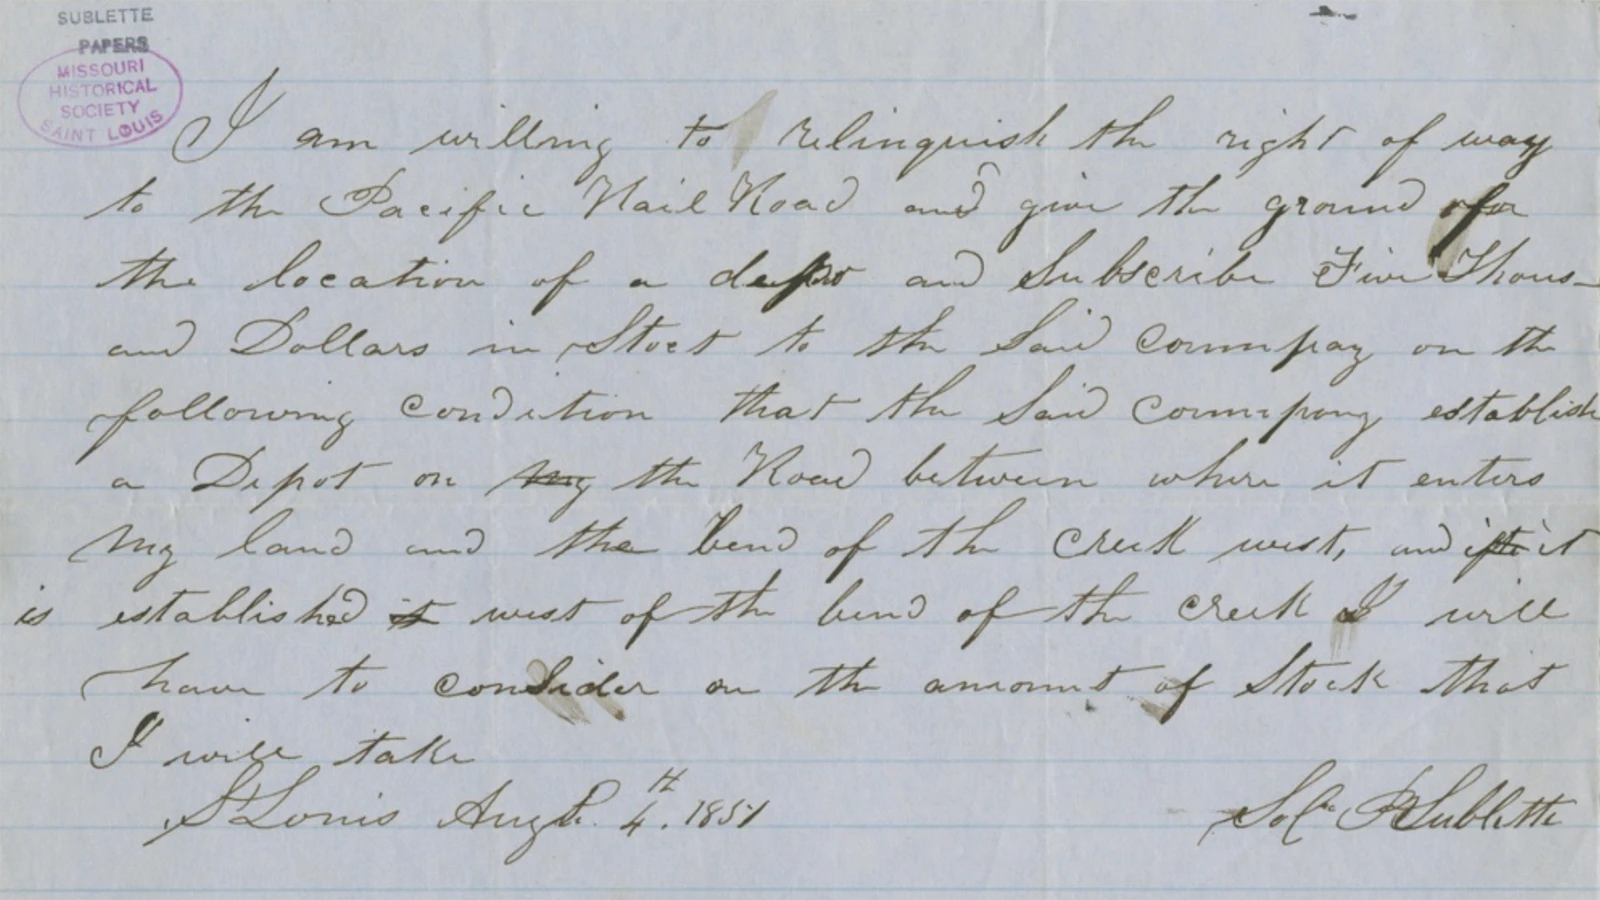 SUBLETTE
PAPERS
MISSOURI
HISTORICAL
SOCIETY
SAINT LOUIS
I am willing to relinquish the right of way
to the Pacific Rail Road and give the ground for
the location of a depo and Subscribe Five Thous-
and Dollars in Stock to the Said Commpay on the
following condition that the Said Commpany establish
a Depot on my the Road between where it enters
My land and the bend of the Creek west, and it
is established it west of the bend of the creek I will
have to consider on the amount of Stock that
I will take
St Louis Augt. 4th. 1851
Sol. P Sublette